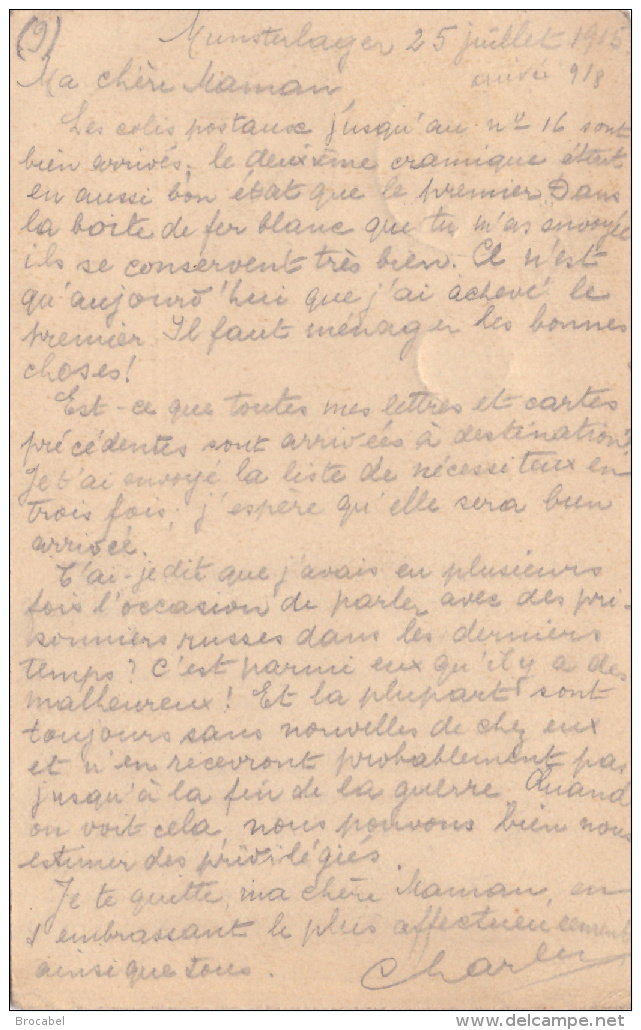 (9)
Munsterlager 25 juillet 1915
Ma chère Maman, arrivée 9/8
Les colis postaux jusqu'au nº 16 sont
bien arrivés; le deuxième cramique était
en aussi bon état que le premier. Dans
la boite de fer blanc que tu m'as envoyée
ils se conservent très bien. Ce n'est
qu'aujourd'hui que j'ai achevé le
premier. Il faut ménager les bonnes
choses!
Est-ce que toutes mes lettres et cartes
précédentes sont arrivées à destination?
Je t'ai envoyé la liste de nécessiteux en
trois fois; j'espère qu'elle sera bien
arrivée.
T'ai-je dit que j'avais eu plusieurs
fois l'occasion de parler avec des pri-
sonniers russes dans les derniers
temps? C'est parmi eux qu'il y a des
malheureux! Et la plupart sont
toujours sans nouvelles de chez eux
et n'en recevront probablement pas
jusqu'à la fin de la guerre. Quand
on voit cela, nous pouvons bien nous
estimer des privilégiés.
Je te quitte, ma chère Maman, en
t'embrassant le plus affectueusement
ainsi que tous.
Charles
© Brocabel
www.delcampe.net